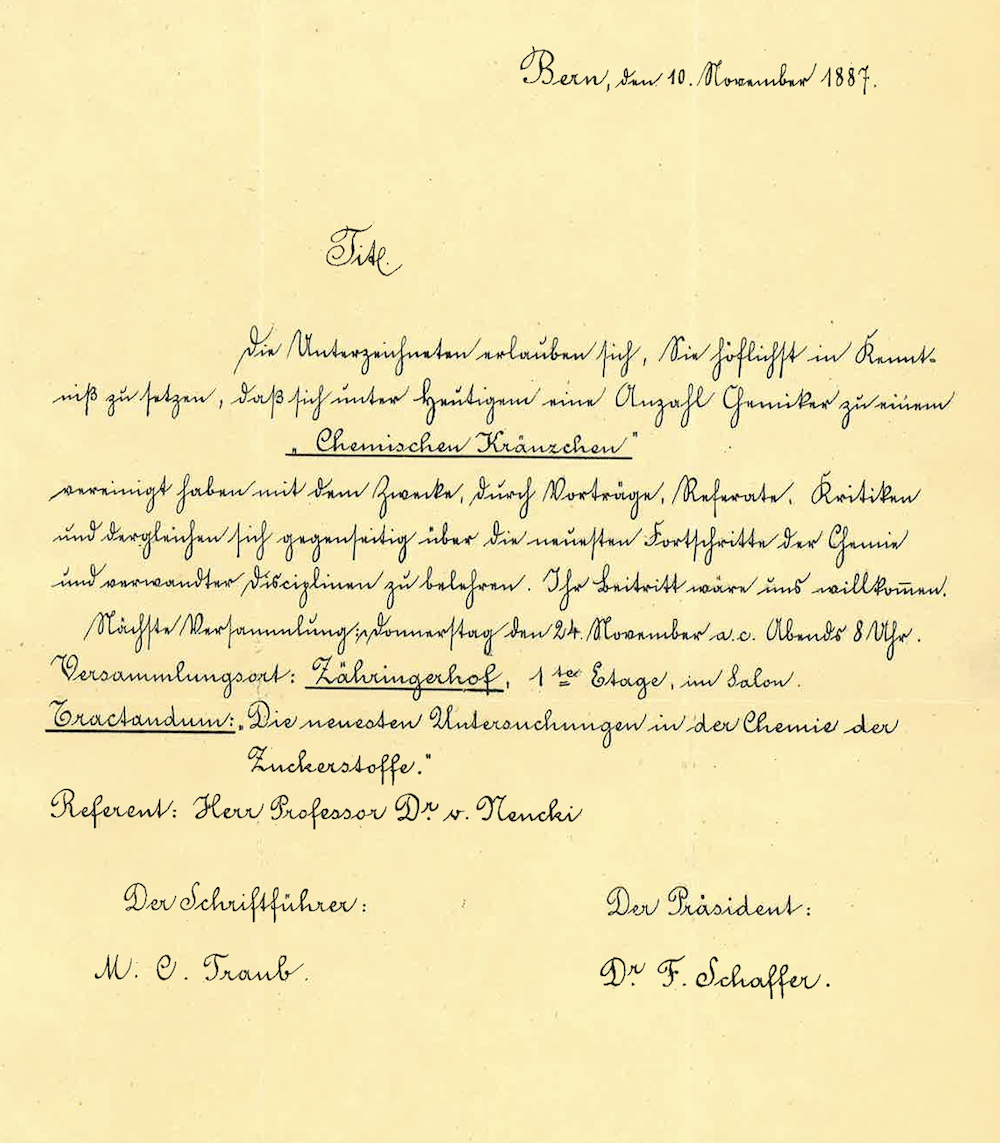 Bern, den 10. November 1887.
Titl.
Die Unterzeichneten erlauben sich, Sie höflichst in Kennt-
niß zu setzen, daß sich unter Heutigem eine Anzahl Chemiker zu einem
„Chemischen Kränzchen"
vereinigt haben mit dem Zwecke, durch Vorträge, Referate, Kritiken
und dergleichen sich gegenseitig über die neuesten Fortschritte der Chemie
und verwandter Disciplinen zu belehren. Ihr Beitritt wäre uns willkom̅en.
Nächste Versammlung: Donnerstag den 24. November a. c. Abends 8 Uhr.
Versammlungsort: Zähringerhof, 1ter Etage, im Salon.
Tractandum: „Die neuesten Untersuchungen in der Chemie der
Zuckerstoffe."
Referent: Herr Professor Dr. v. Nencki
Der Schriftführer:
M. C. Traub.
Der Präsident:
Dr. F. Schaffer.